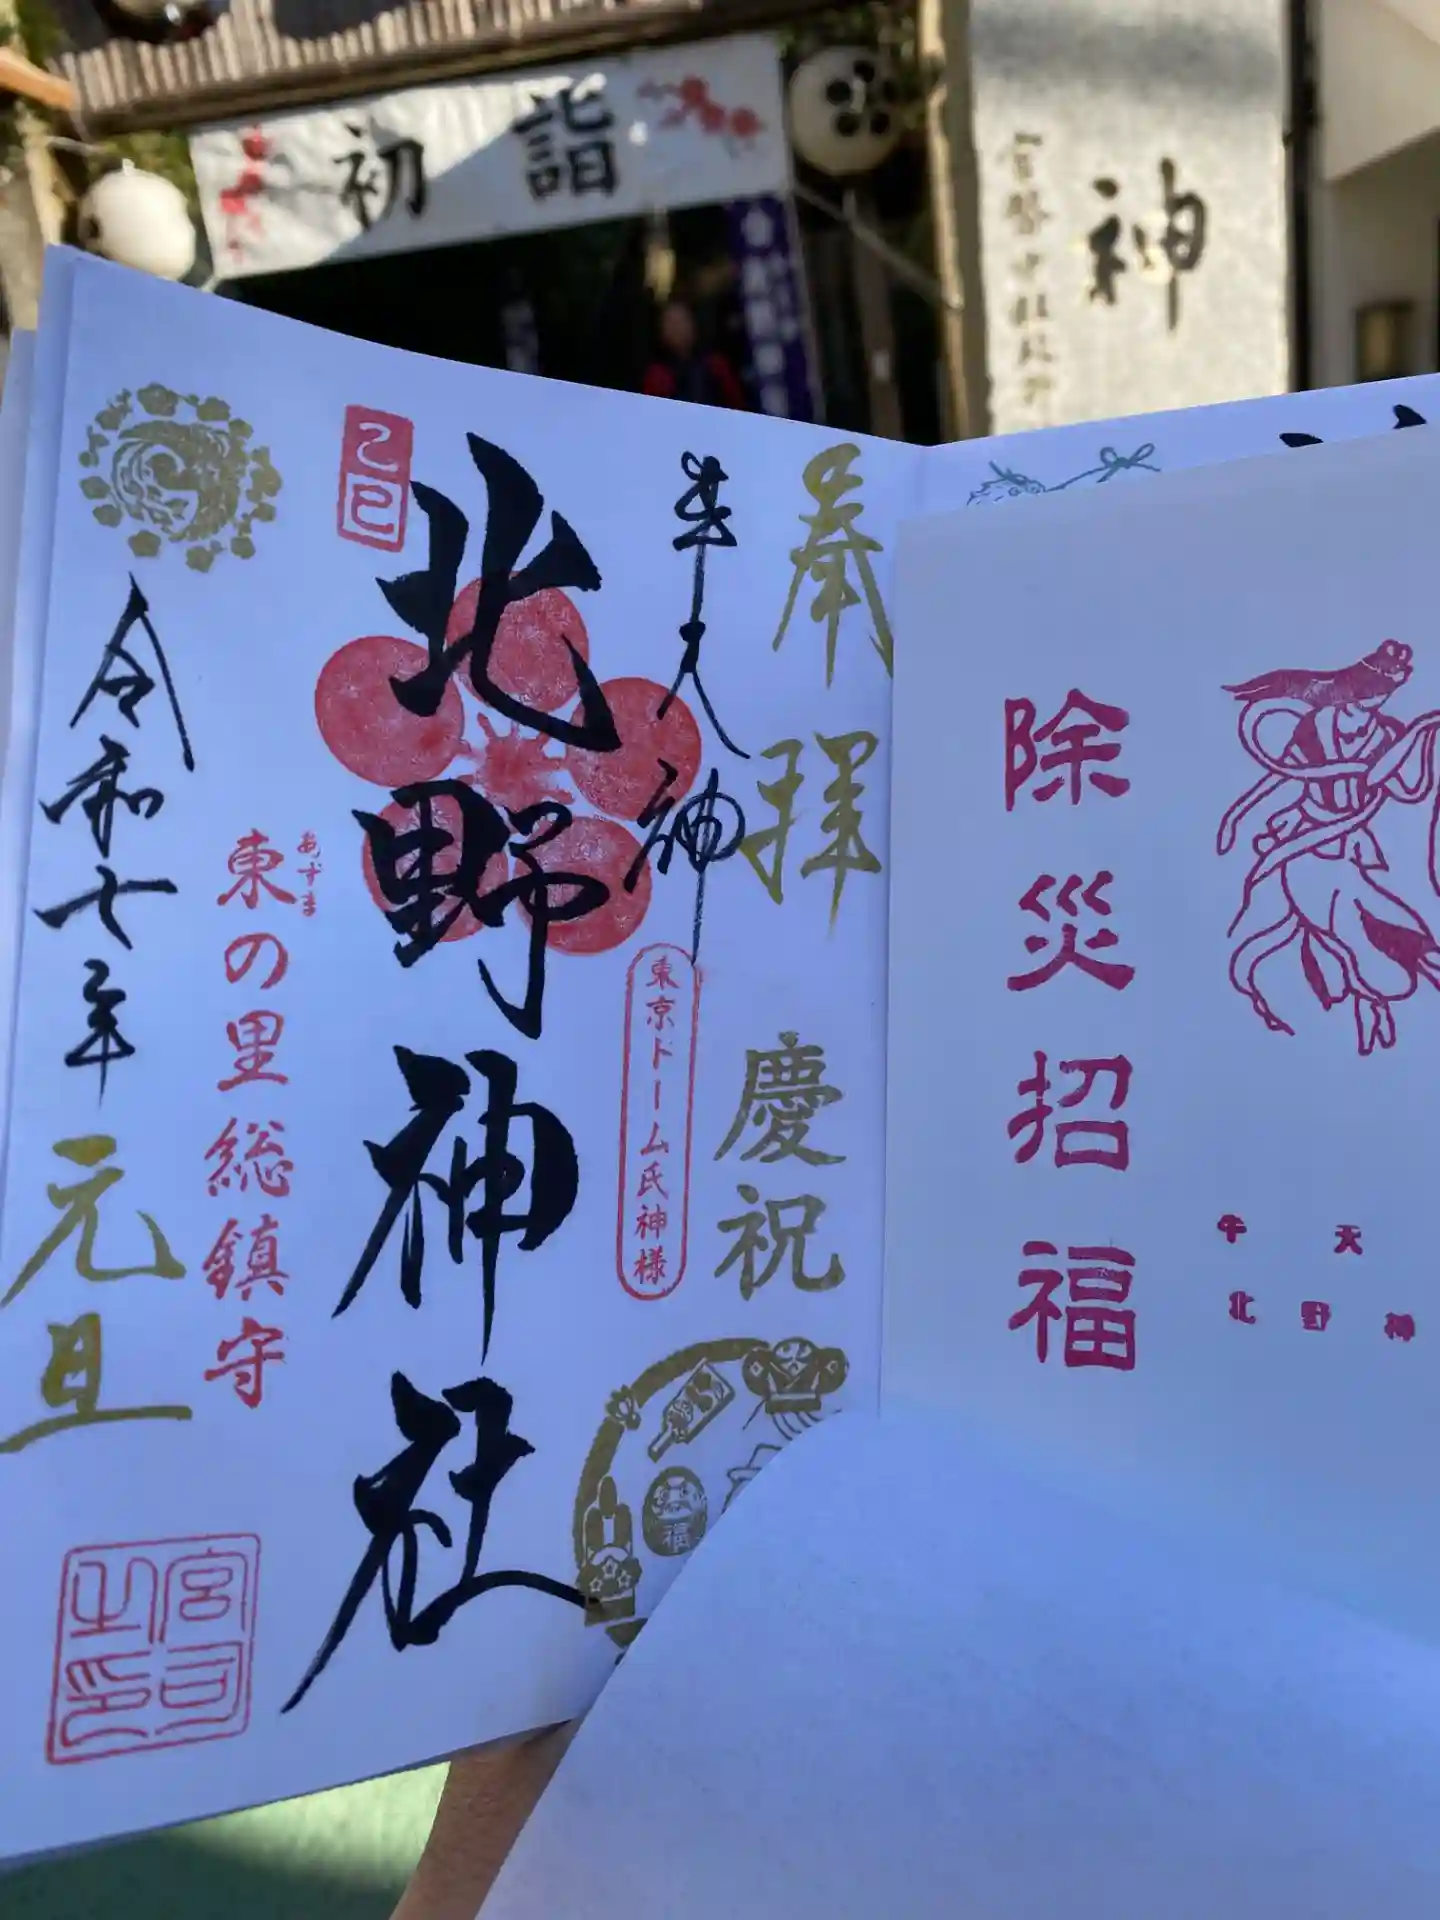 初詣
神
奉拝
慶祝
牛天神
東京ドーム氏神様
北野神社
乙巳
東の里総鎮守
あずま
令和七年
元旦
宮司之印
福
除災招福
牛天
北野神